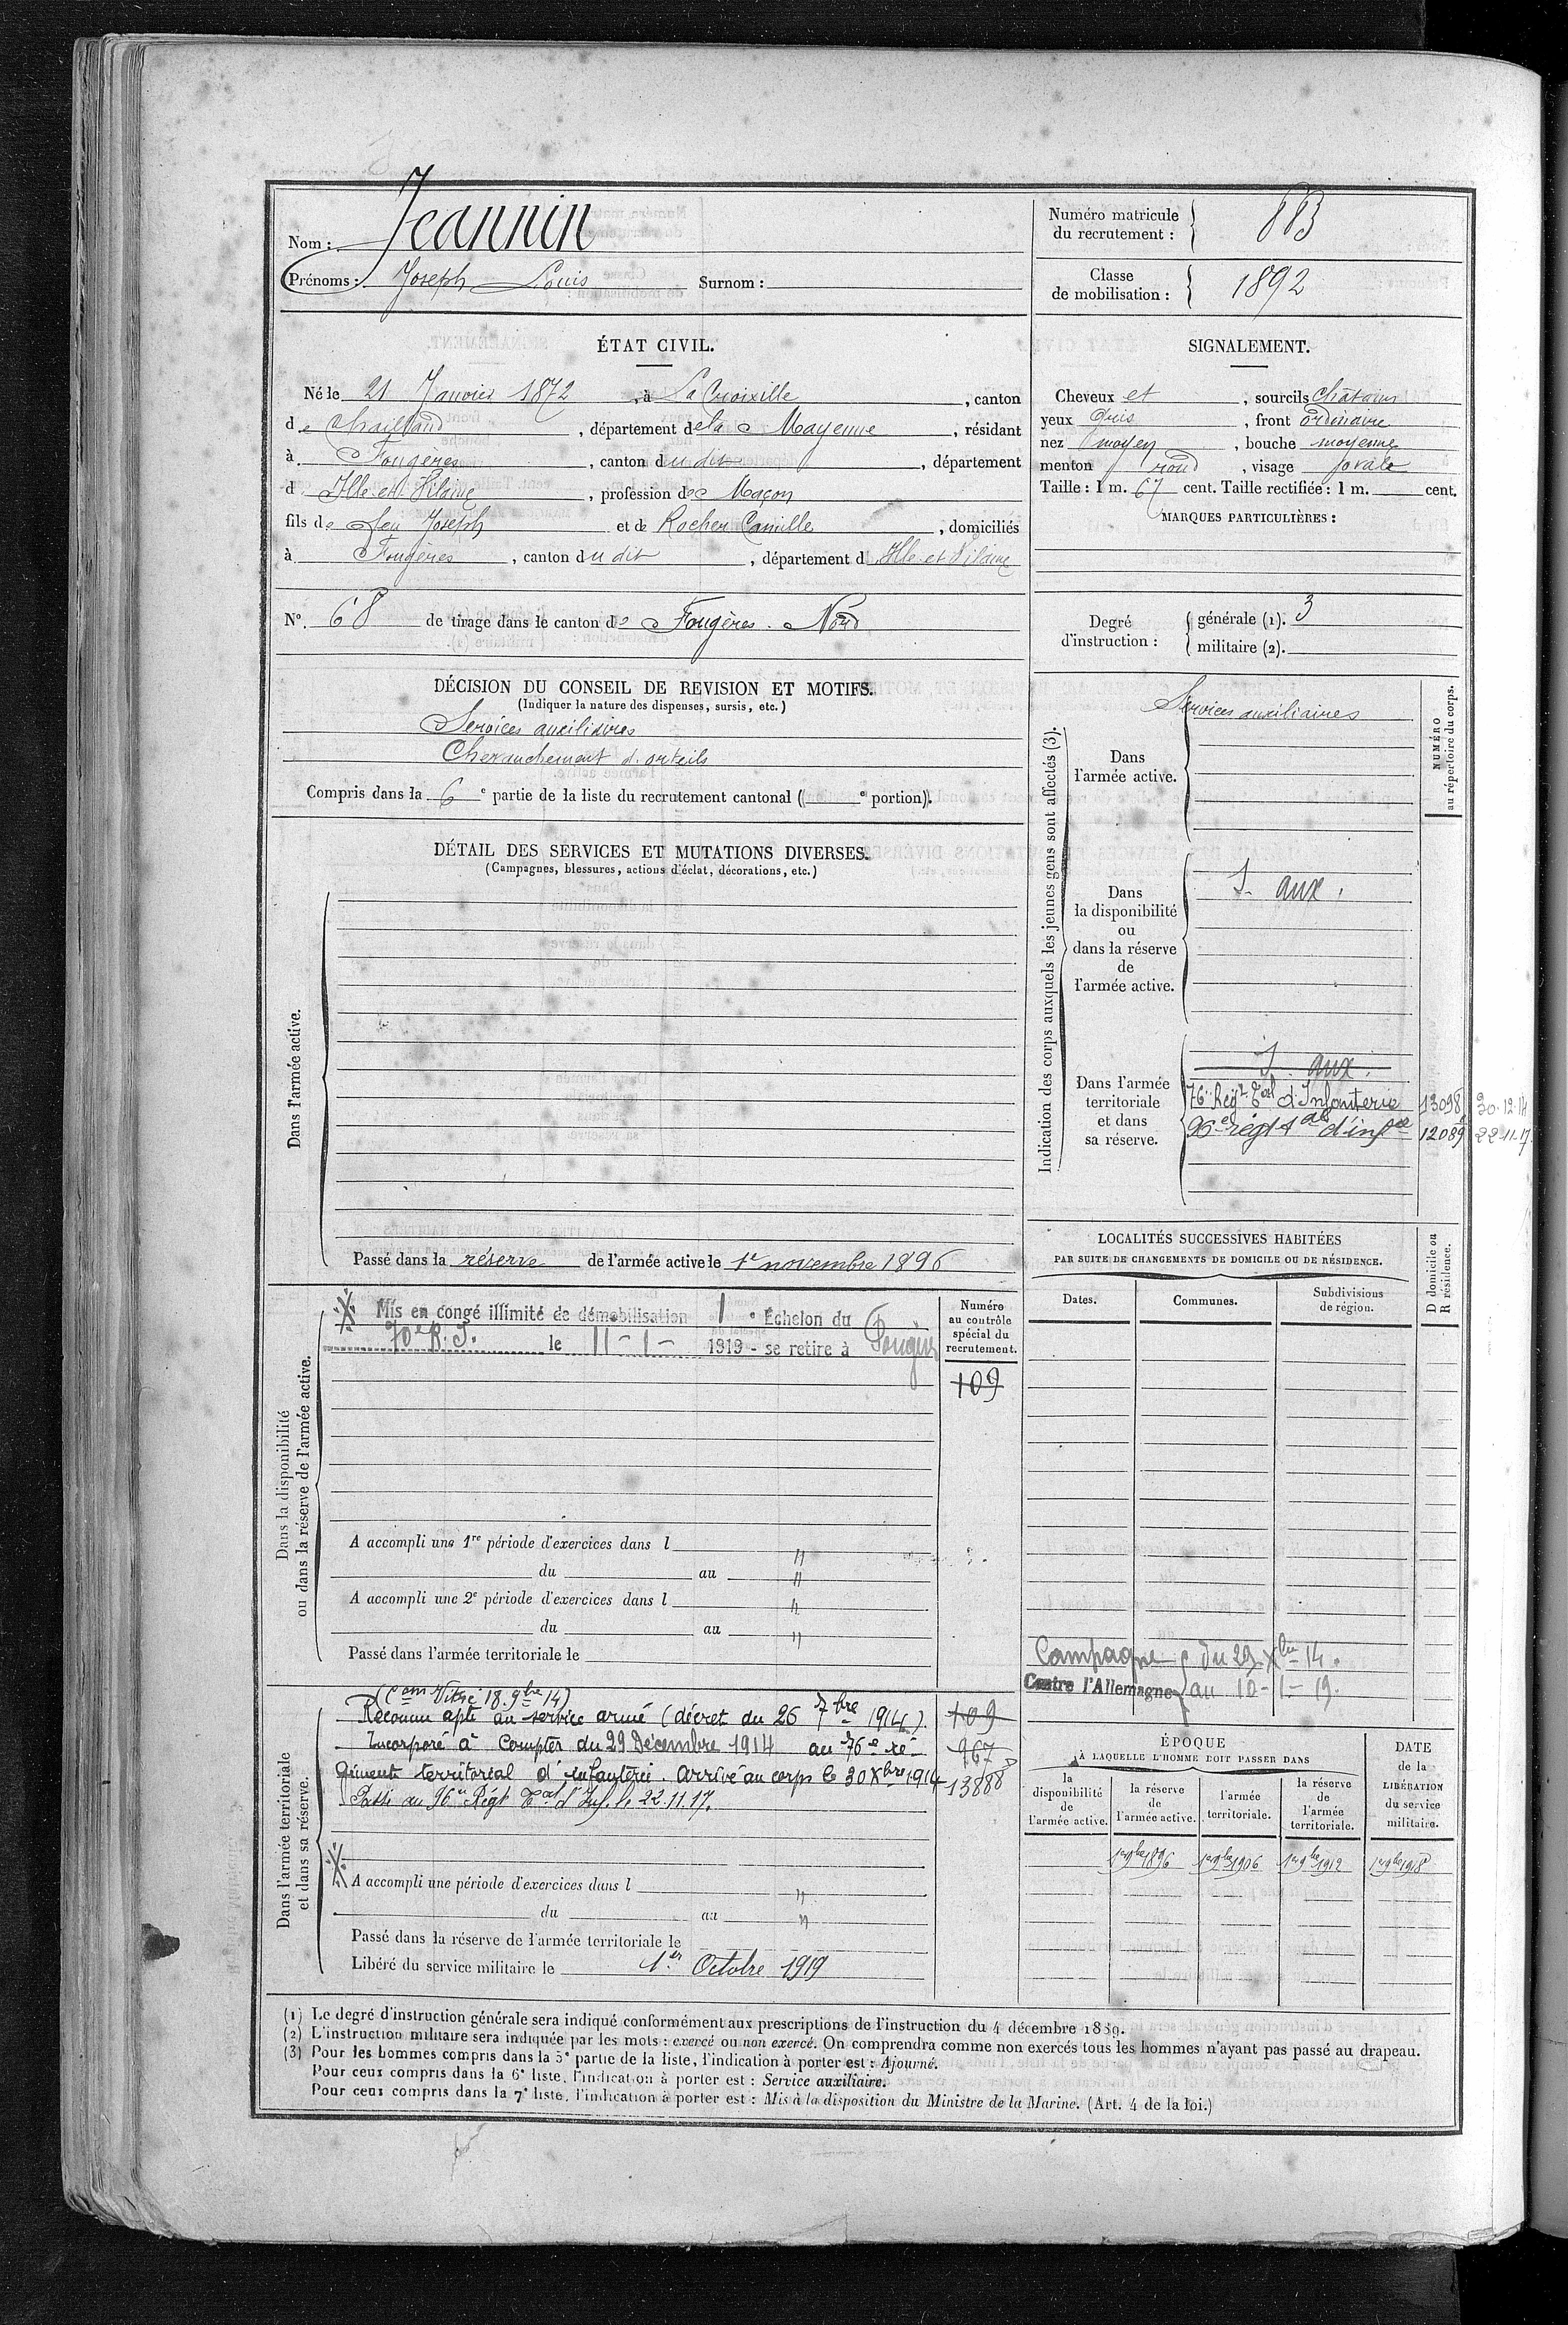 Nom : Jeannin
Prénoms : Joseph Louis Surnom :
Numéro matricule du recrutement : 883
Classe de mobilisation : 1892
ÉTAT CIVIL.
Né le 21 Janvier 1872, à La Croixille, canton
de Chailland, département de la Mayenne, résidant
à Fougères, canton du dit, département
d Ille et Vilaine, profession de Maçon
fils de feu Joseph et de Rocher Camille, domiciliés
à Fougères, canton du dit, département d Ille et Vilaine
N° 68 de tirage dans le canton de Fougères Nord
SIGNALEMENT.
Cheveux et, sourcils châtains
yeux gris, front ordinaire
nez moyen, bouche moyenne
menton rond, visage ovale
Taille : 1 m. 67 cent. Taille rectifiée : 1 m. cent.
MARQUES PARTICULIÈRES :
Degré d'instruction : générale (1). 3
militaire (2).
DÉCISION DU CONSEIL DE REVISION ET MOTIFS.
(Indiquer la nature des dispenses, sursis, etc.)
Services auxiliaires
Chevauchement d'orteils
Compris dans la 6e partie de la liste du recrutement cantonal ( e portion).
DÉTAIL DES SERVICES ET MUTATIONS DIVERSES.
(Campagnes, blessures, actions d'éclat, décorations, etc.)
Dans l'armée active.
Passé dans la réserve de l'armée active le 1er novembre 1896
Indication des corps auxquels les jeunes gens sont affectés (3).
NUMÉRO au répertoire du corps.
Dans l'armée active.
Services auxiliaires
Dans la disponibilité ou dans la réserve de l'armée active.
S. aux.
Dans l'armée territoriale et dans sa réserve.
S. aux.
76e Regt Tal d'Infanterie 13098 30.12.14
96e regt tal d'infie 12089 22.11.17
Dans la disponibilité ou dans la réserve de l'armée active.
Mis en congé illimité de démobilisation 1e Échelon du
70e R.I. le 11-1- 1919 - se retire à Fougères
Numéro au contrôle spécial du recrutement.
109
A accompli une 1re période d'exercices dans l "
du au "
A accompli une 2e période d'exercices dans l "
du au "
Passé dans l'armée territoriale le
LOCALITÉS SUCCESSIVES HABITÉES
PAR SUITE DE CHANGEMENTS DE DOMICILE OU DE RÉSIDENCE.
Dates. Communes. Subdivisions de région. D domicile ou R résidence.
Campagne du 29 Xbre 14.
Contre l'Allemagne au 10-1-19.
Dans l'armée territoriale et dans sa réserve.
(Com Vitré 18.9bre 14)
Reconnu apte au service armé (décret du 26 7bre 1914). 109
Incorporé à compter du 29 Décembre 1914 au 76e ré- 967
giment territorial d'infanterie. Arrivé au corps le 30 Xbre 1914 13888
Passé au 96e Régt Tal d'Inf. le 22.11.17.
A accompli une période d'exercices dans l "
du au "
Passé dans la réserve de l'armée territoriale le
Libéré du service militaire le 1er Octobre 1919
ÉPOQUE
À LAQUELLE L'HOMME DOIT PASSER DANS
la disponibilité de l'armée active. la réserve de l'armée active. l'armée territoriale. la réserve de l'armée territoriale. DATE de la LIBÉRATION du service militaire.
1er 9bre 1896 1er 9bre 1906 1er 9bre 1912 1er 9bre 1918
(1) Le degré d'instruction générale sera indiqué conformément aux prescriptions de l'instruction du 4 décembre 1889.
(2) L'instruction militaire sera indiquée par les mots : exercé ou non exercé. On comprendra comme non exercés tous les hommes n'ayant pas passé au drapeau.
(3) Pour les hommes compris dans la 5e partie de la liste, l'indication à porter est : Ajourné.
Pour ceux compris dans la 6e liste, l'indication à porter est : Service auxiliaire.
Pour ceux compris dans la 7e liste, l'indication à porter est : Mis à la disposition du Ministre de la Marine. (Art. 4 de la loi.)